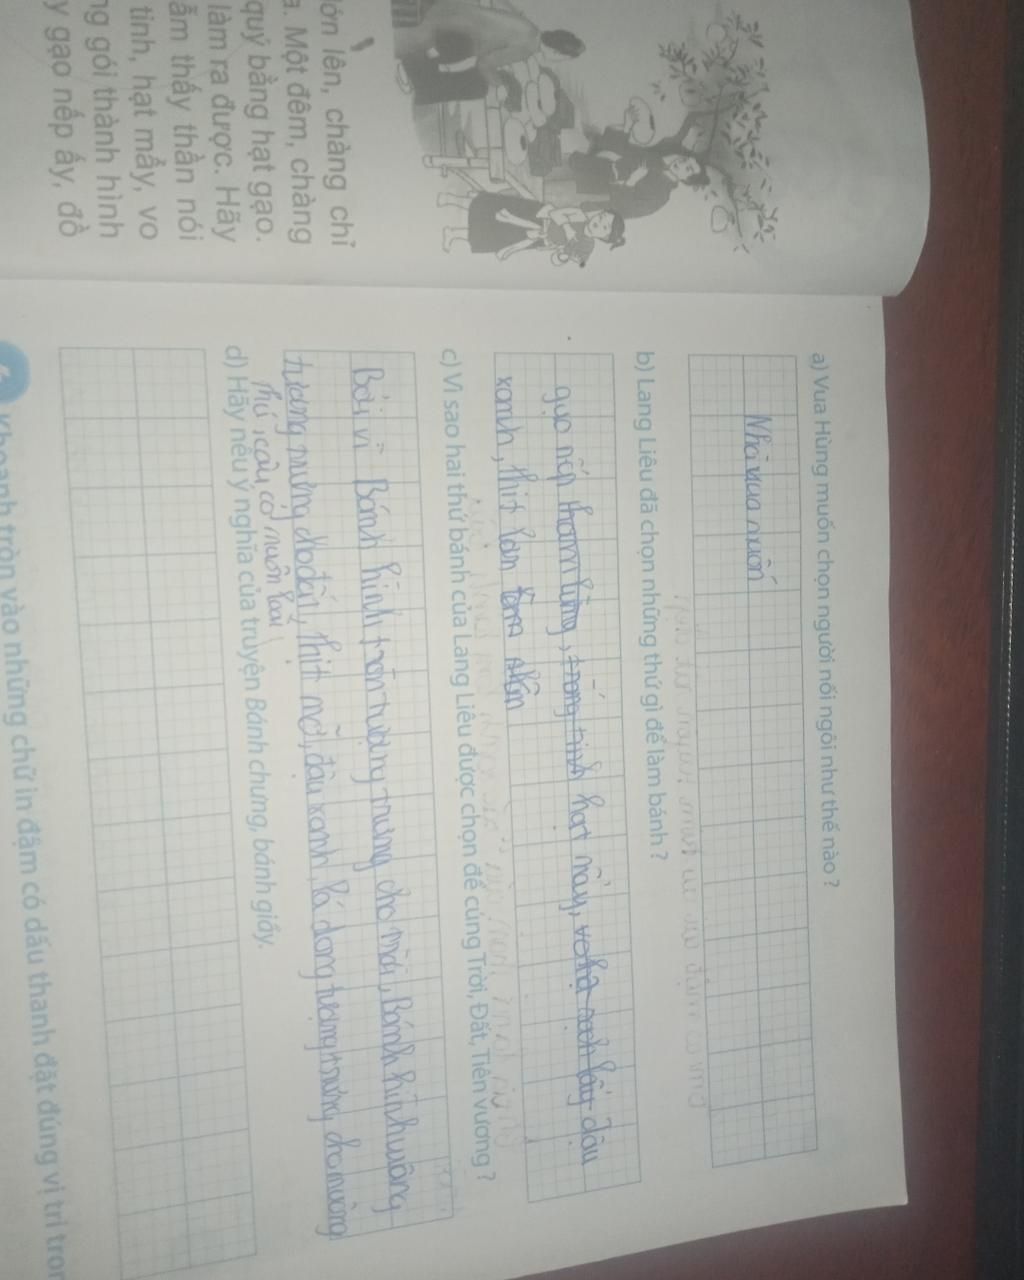 lớn lên, chàng chỉ
a. Một đêm, chàng
quý bằng hạt gạo.
làm ra được. Hãy
ẫm thấy thần nói
tinh, hạt mẩy, vo
ng gói thành hình
y gạo nếp ấy, đồ
a) Vua Hùng muốn chọn người nối ngôi như thế nào ?
Nhà vua muốn
b) Lang Liêu đã chọn những thứ gì để làm bánh ?
gạo nếp thơm lừng, trắng tinh hạt mẩy, đậu
xanh, thịt lợn
c) Vì sao hai thứ bánh của Lang Liêu được chọn để cúng Trời, Đất, Tiên vương ?
Bởi vì Bánh hình tròn tượng trưng cho trời, Bánh hình vuông
tượng trưng cho đất, thịt mỡ, đậu xanh, lá dong tượng trưng cho muông
thú, cây cỏ muôn loài
d) Hãy nêu ý nghĩa của truyện Bánh chưng, bánh giầy.
Khoanh tròn vào những chữ in đậm có dấu thanh đặt đúng vị trí tron